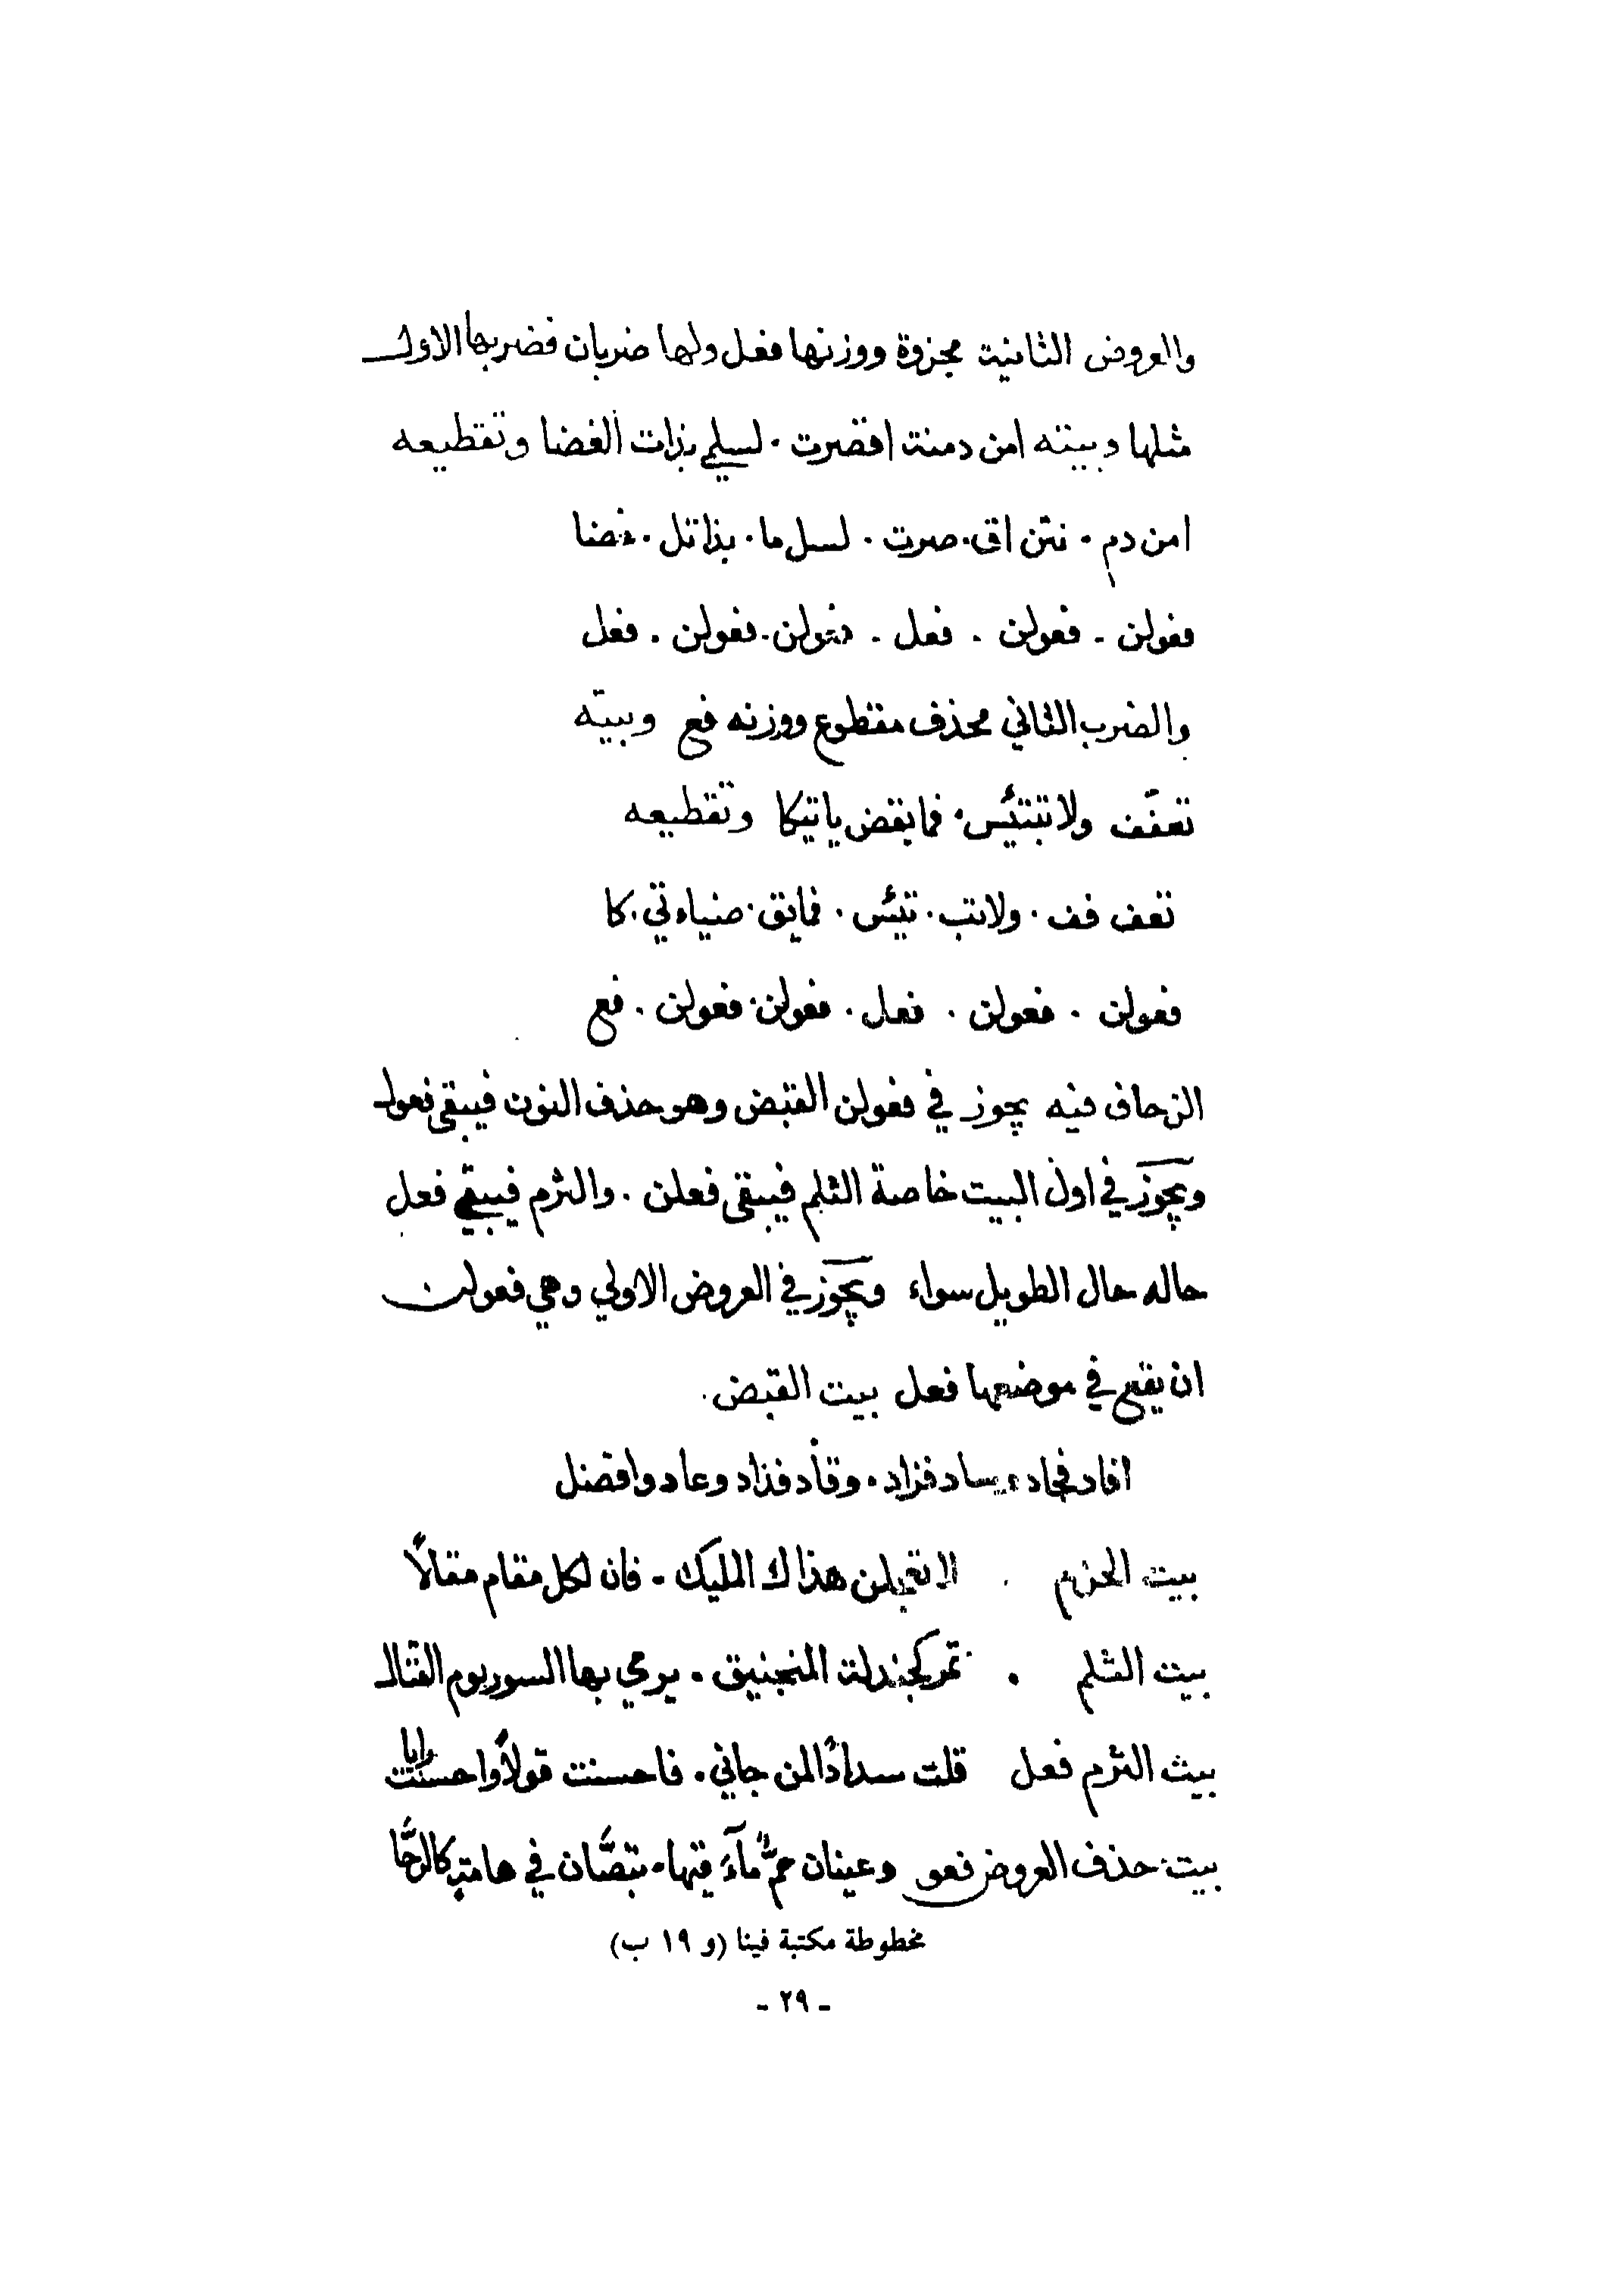 والعروض الثانية مجزوة ووزنها فعل ولها ضربان فضربها الاول
مثلها وبيته امن دمنة اقصرت . لسلمي بذات الغضا وتقطيعه
امن دم . نتن اق . صرت . لسل ما . بذاتل . غضا
فعولن - فعولن . فعل . فعولن . فعولن . فعل
والضرب الثاني محذف مقطوع ووزنه فع وبيته
تعفف ولا تبتئس . فما يقض ياتيكا وتقطيعه
تعف فف . ولاتب . تئس . فمايق . ضياءتي . كا
فعولن . فعولن . فعل . فعولن . فعولن . فع
الزحاف فيه يجوز في فعولن القبض وهو حذف النون فيبقى فعول
ويجوز في اول البيت خاصة الثلم فيبقى فعلن . والثرم فيبقي فعل
حاله حال الطويل سواء ويجوز في العروض الاولي وهي فعولن
ان يقع في موضعها فعل بيت القبض .
افاد فجاد وساد فزاد . وقاد فذاد وعاد وافضل
بيت الخرم . لا تعجلن هذاك المليك - فان لكل مقام مقالاً
بيت الثلم . تمر كجندلة المنجنيق . يرمي بها السور يوم القتال
بيث الثرم فعل قلت سداداً لمن جاني . فاحسنت قولاً واحسنت رايا
بيت حذف العروض فعو وعينان حمٌّ مآء قيها . تبصّان في هامةٍ كالرحّا
مخطوطة مكتبة فينا (و ١٩ ب)
- ٢٩ -